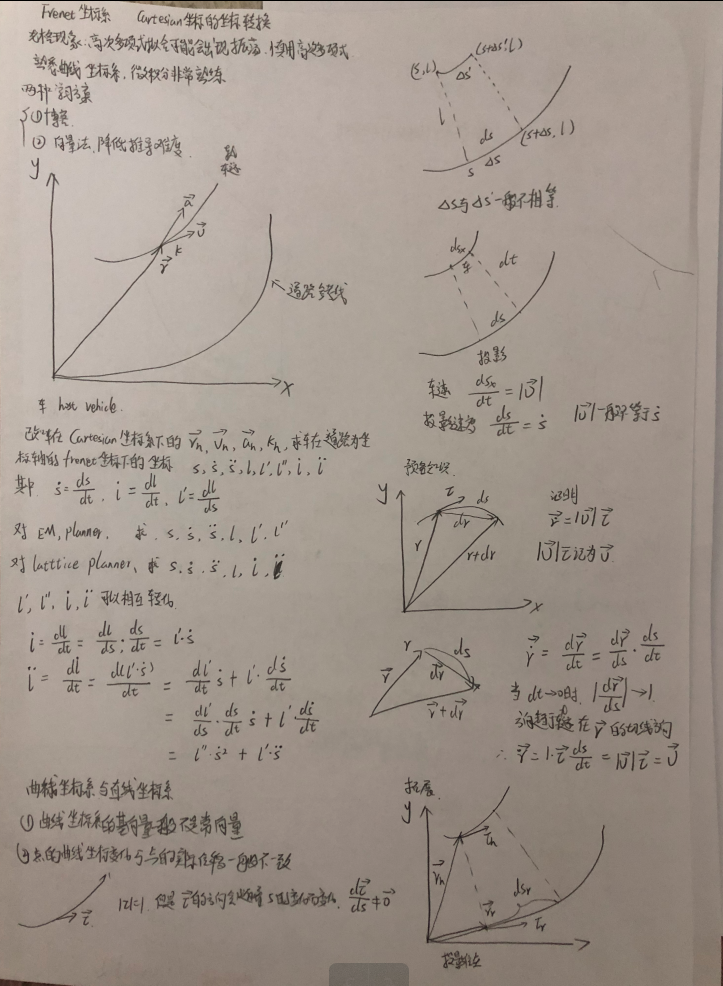 Frenet坐标系 Cartesian坐标的坐标转换
龙格现象:高次多项式拟合可能会出现振荡,慎用高次多项式
熟悉曲线坐标系,微积分非常熟练
两种方案
①
②向量法,降低推导难度
y
车迹
a⃗
v⃗
k
r⃗
道路
x
车 host vehicle.
在Cartesian坐标系下的 r⃗h, v⃗h, a⃗h, kh,求车在道路为坐
标轴的frenet坐标下的坐标 s, ṡ, s̈, l, l', l'', l̇, l̈
其中 ṡ=ds/dt, l̇=dl/dt, l'=dl/ds
对EM planner, 求 s, ṡ, s̈, l, l', l''
对latttice planner, 求 s, ṡ, s̈, l, l̇, l̈
l', l'', l̇, l̈ 可以相互转化
l̇=dl/dt=dl/ds·ds/dt=l'·ṡ
l̈=dl̇/dt=d(l'·ṡ)/dt=dl'/dt ṡ+l'·dṡ/dt
=dl'/ds·ds/dt ṡ+l'·dṡ/dt
=l''·ṡ²+l'·s̈
曲线坐标系与直线坐标系
①曲线坐标系的基向量一般不是常向量
②点的曲线坐标变化与点的实际位移一般不一致
τ⃗
|τ|=1, 但是τ⃗的方向会随着s的变化而变化, dτ⃗/ds≠0⃗
(s,l)
Δs'
(s+Δs',l)
l
ds
s
Δs
(s+Δs,l)
Δs与Δs'一般不相等
dsx
车
dt
ds
投影
车速 dsx/dt=|v⃗|
投影速度 ds/dt=ṡ |v⃗|一般不等于ṡ
预备知识
y
τ
ds
dr
r
r+dr
x
证明
r⃗̇=|v⃗|τ⃗
|v⃗|τ⃗记为v⃗
r
ds
r⃗
dr⃗
r⃗+dr⃗
r⃗̇=dr⃗/dt=dr⃗/ds·ds/dt
当dt→0时, |dr⃗/ds|→1
方向趋于在r⃗的切线方向
∴r⃗̇=1·τ⃗ ds/dt=|v⃗|τ⃗=v⃗
拓展
y
τ⃗h
r⃗h
dsr
r⃗r
τ⃗r
x
投影